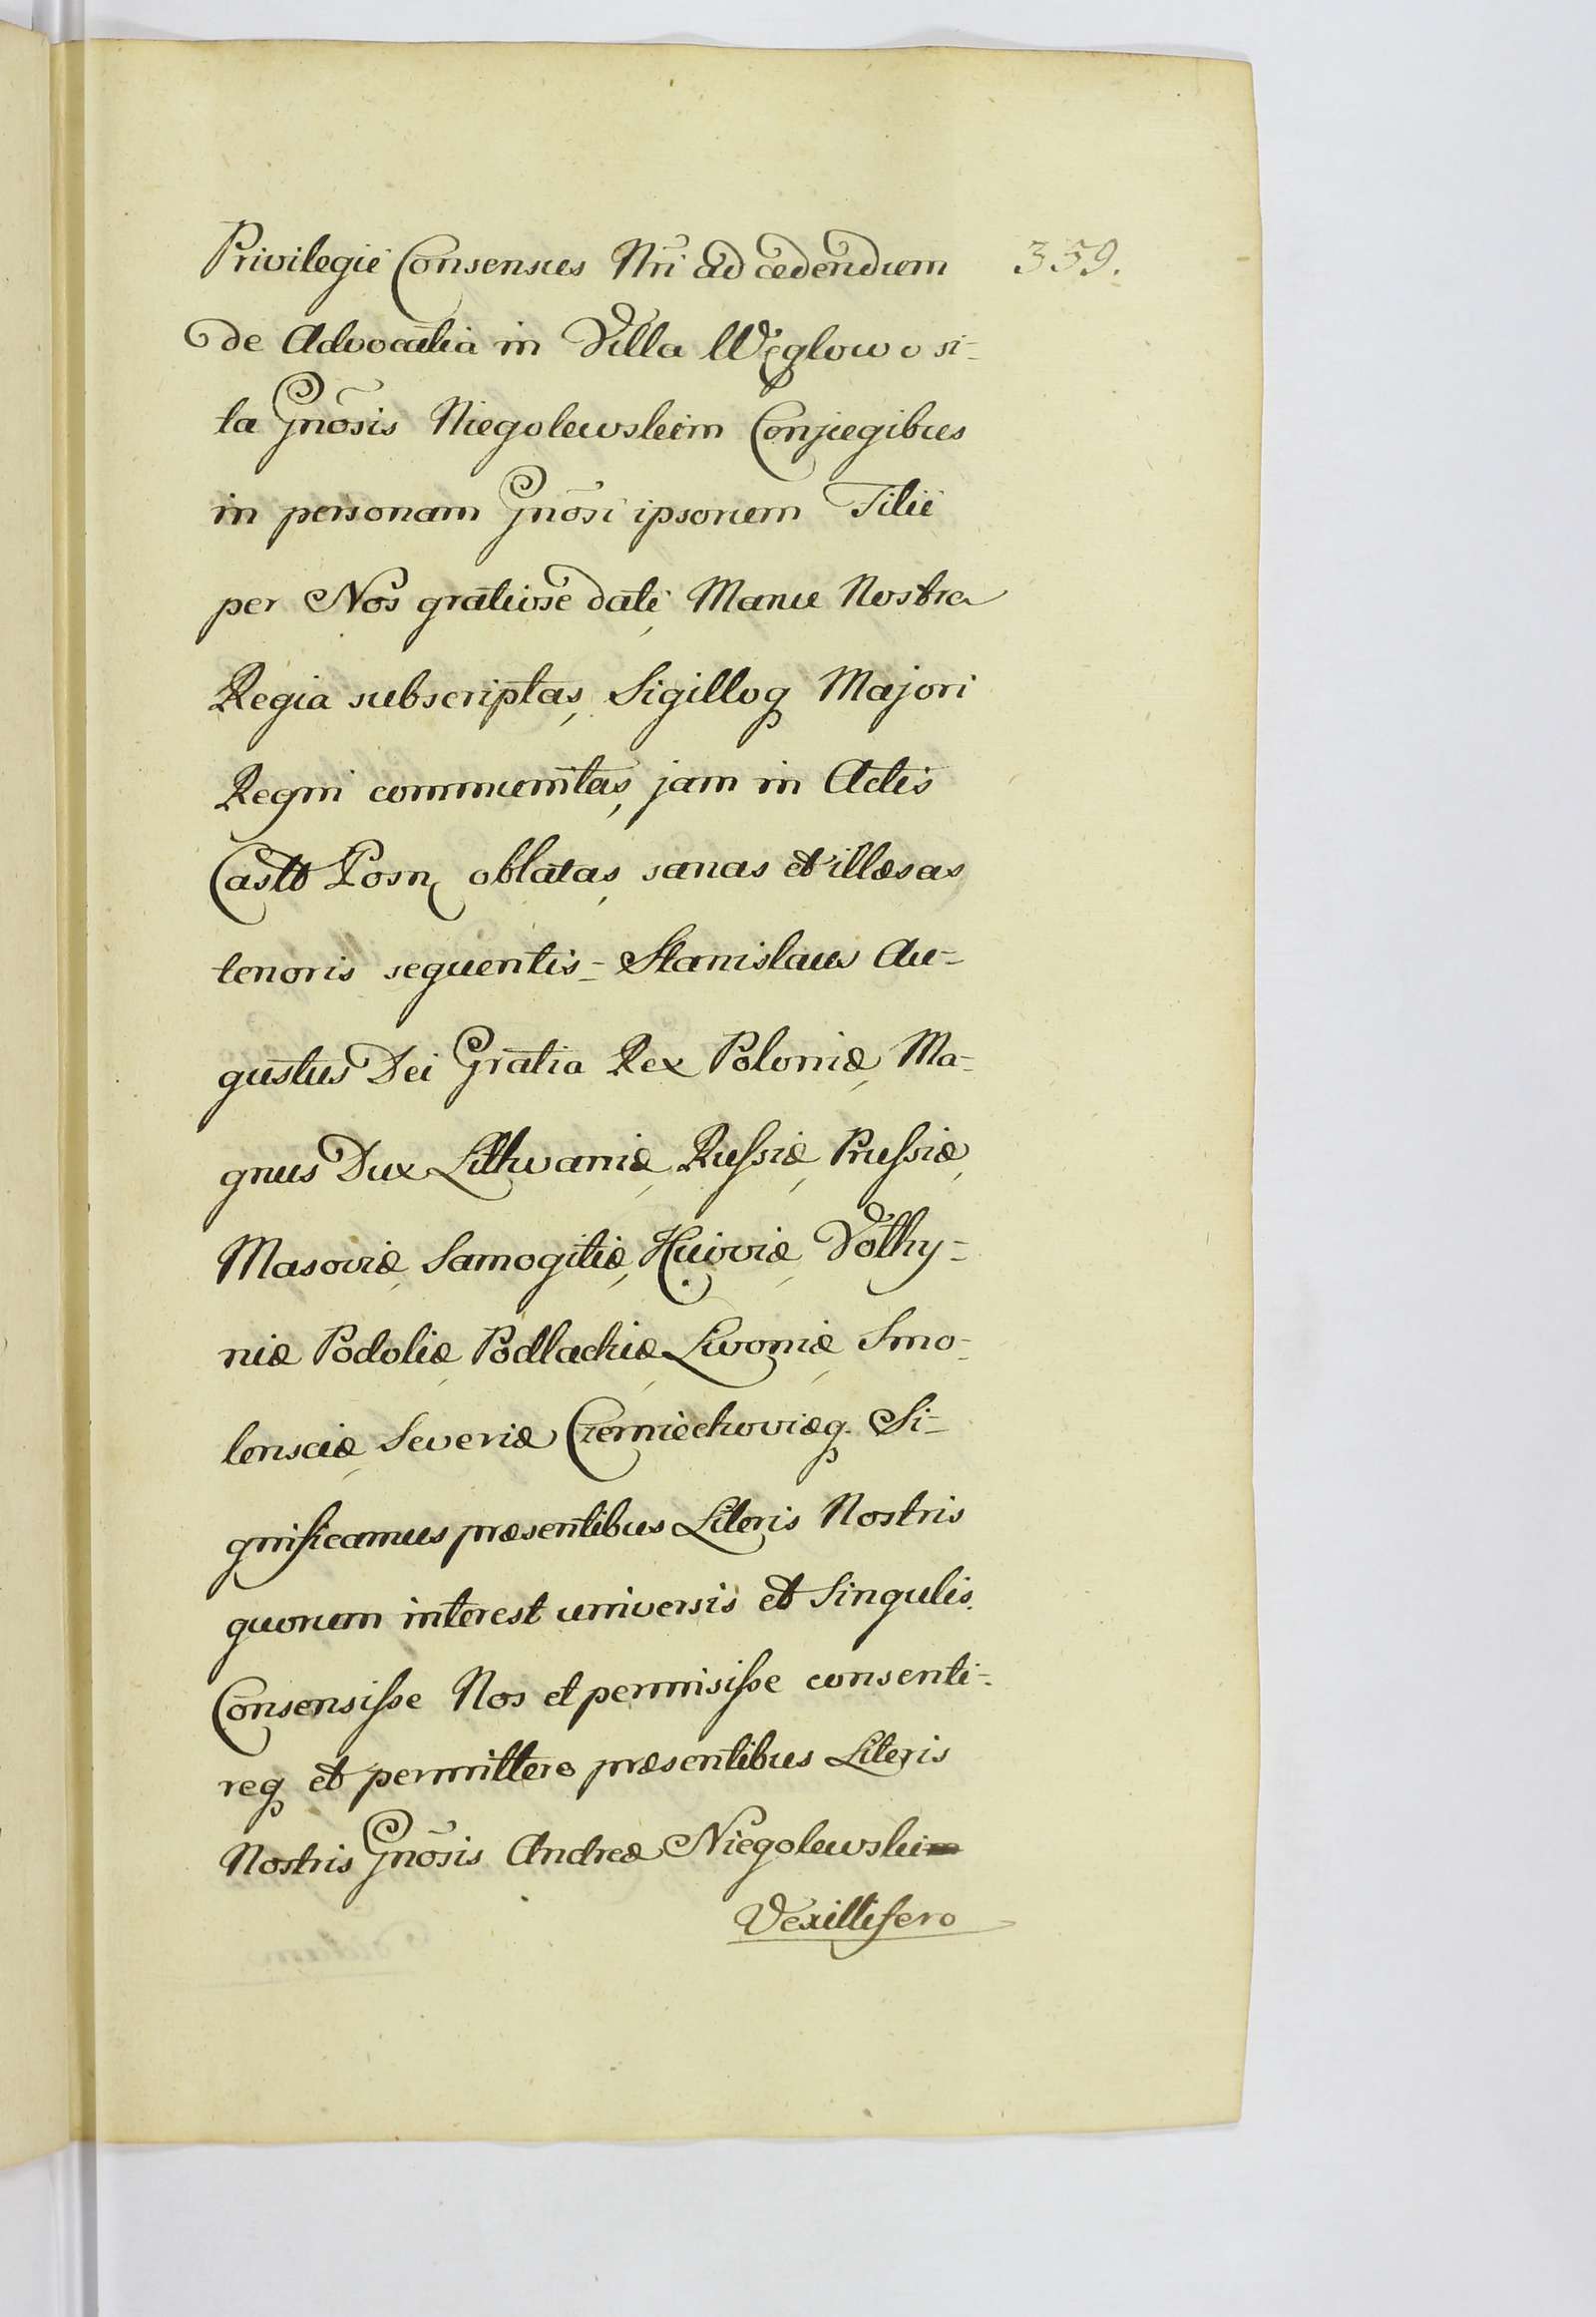 Privilegii Consensus Nri ad cedendum 359.
de Advocatia in Villa Węglowo si-
ta Gnosis Niegolewskim Conjugibus
in personam Gnosi ipsorum Filii
per Nos gratiose dati, Manu Nostra
Regia subscriptas, Sigilloq Majori
Regni communitas, jam in Actis
Castr Posn oblatas, sanas et illæsas
tenoris sequentis - Stanislaus Au-
gustus Dei Gratia Rex Poloniæ, Ma-
gnus Dux Lithvaniæ, Russiæ, Prussiæ,
Masoviæ, Samogitiæ, Kijoviæ, Volhy-
niæ Podoliæ, Podlachiæ, Livoniæ, Smo-
lensciæ, Severiæ Czerniechoviæq. Si-
gnificamus præsentibus Literis Nostris
quorum interest universis et singulis.
Consensisse Nos et permisisse consenti-
req et permittere præsentibus Literis
Nostris Gnosis Andreæ Niegolewski
Vexillifero